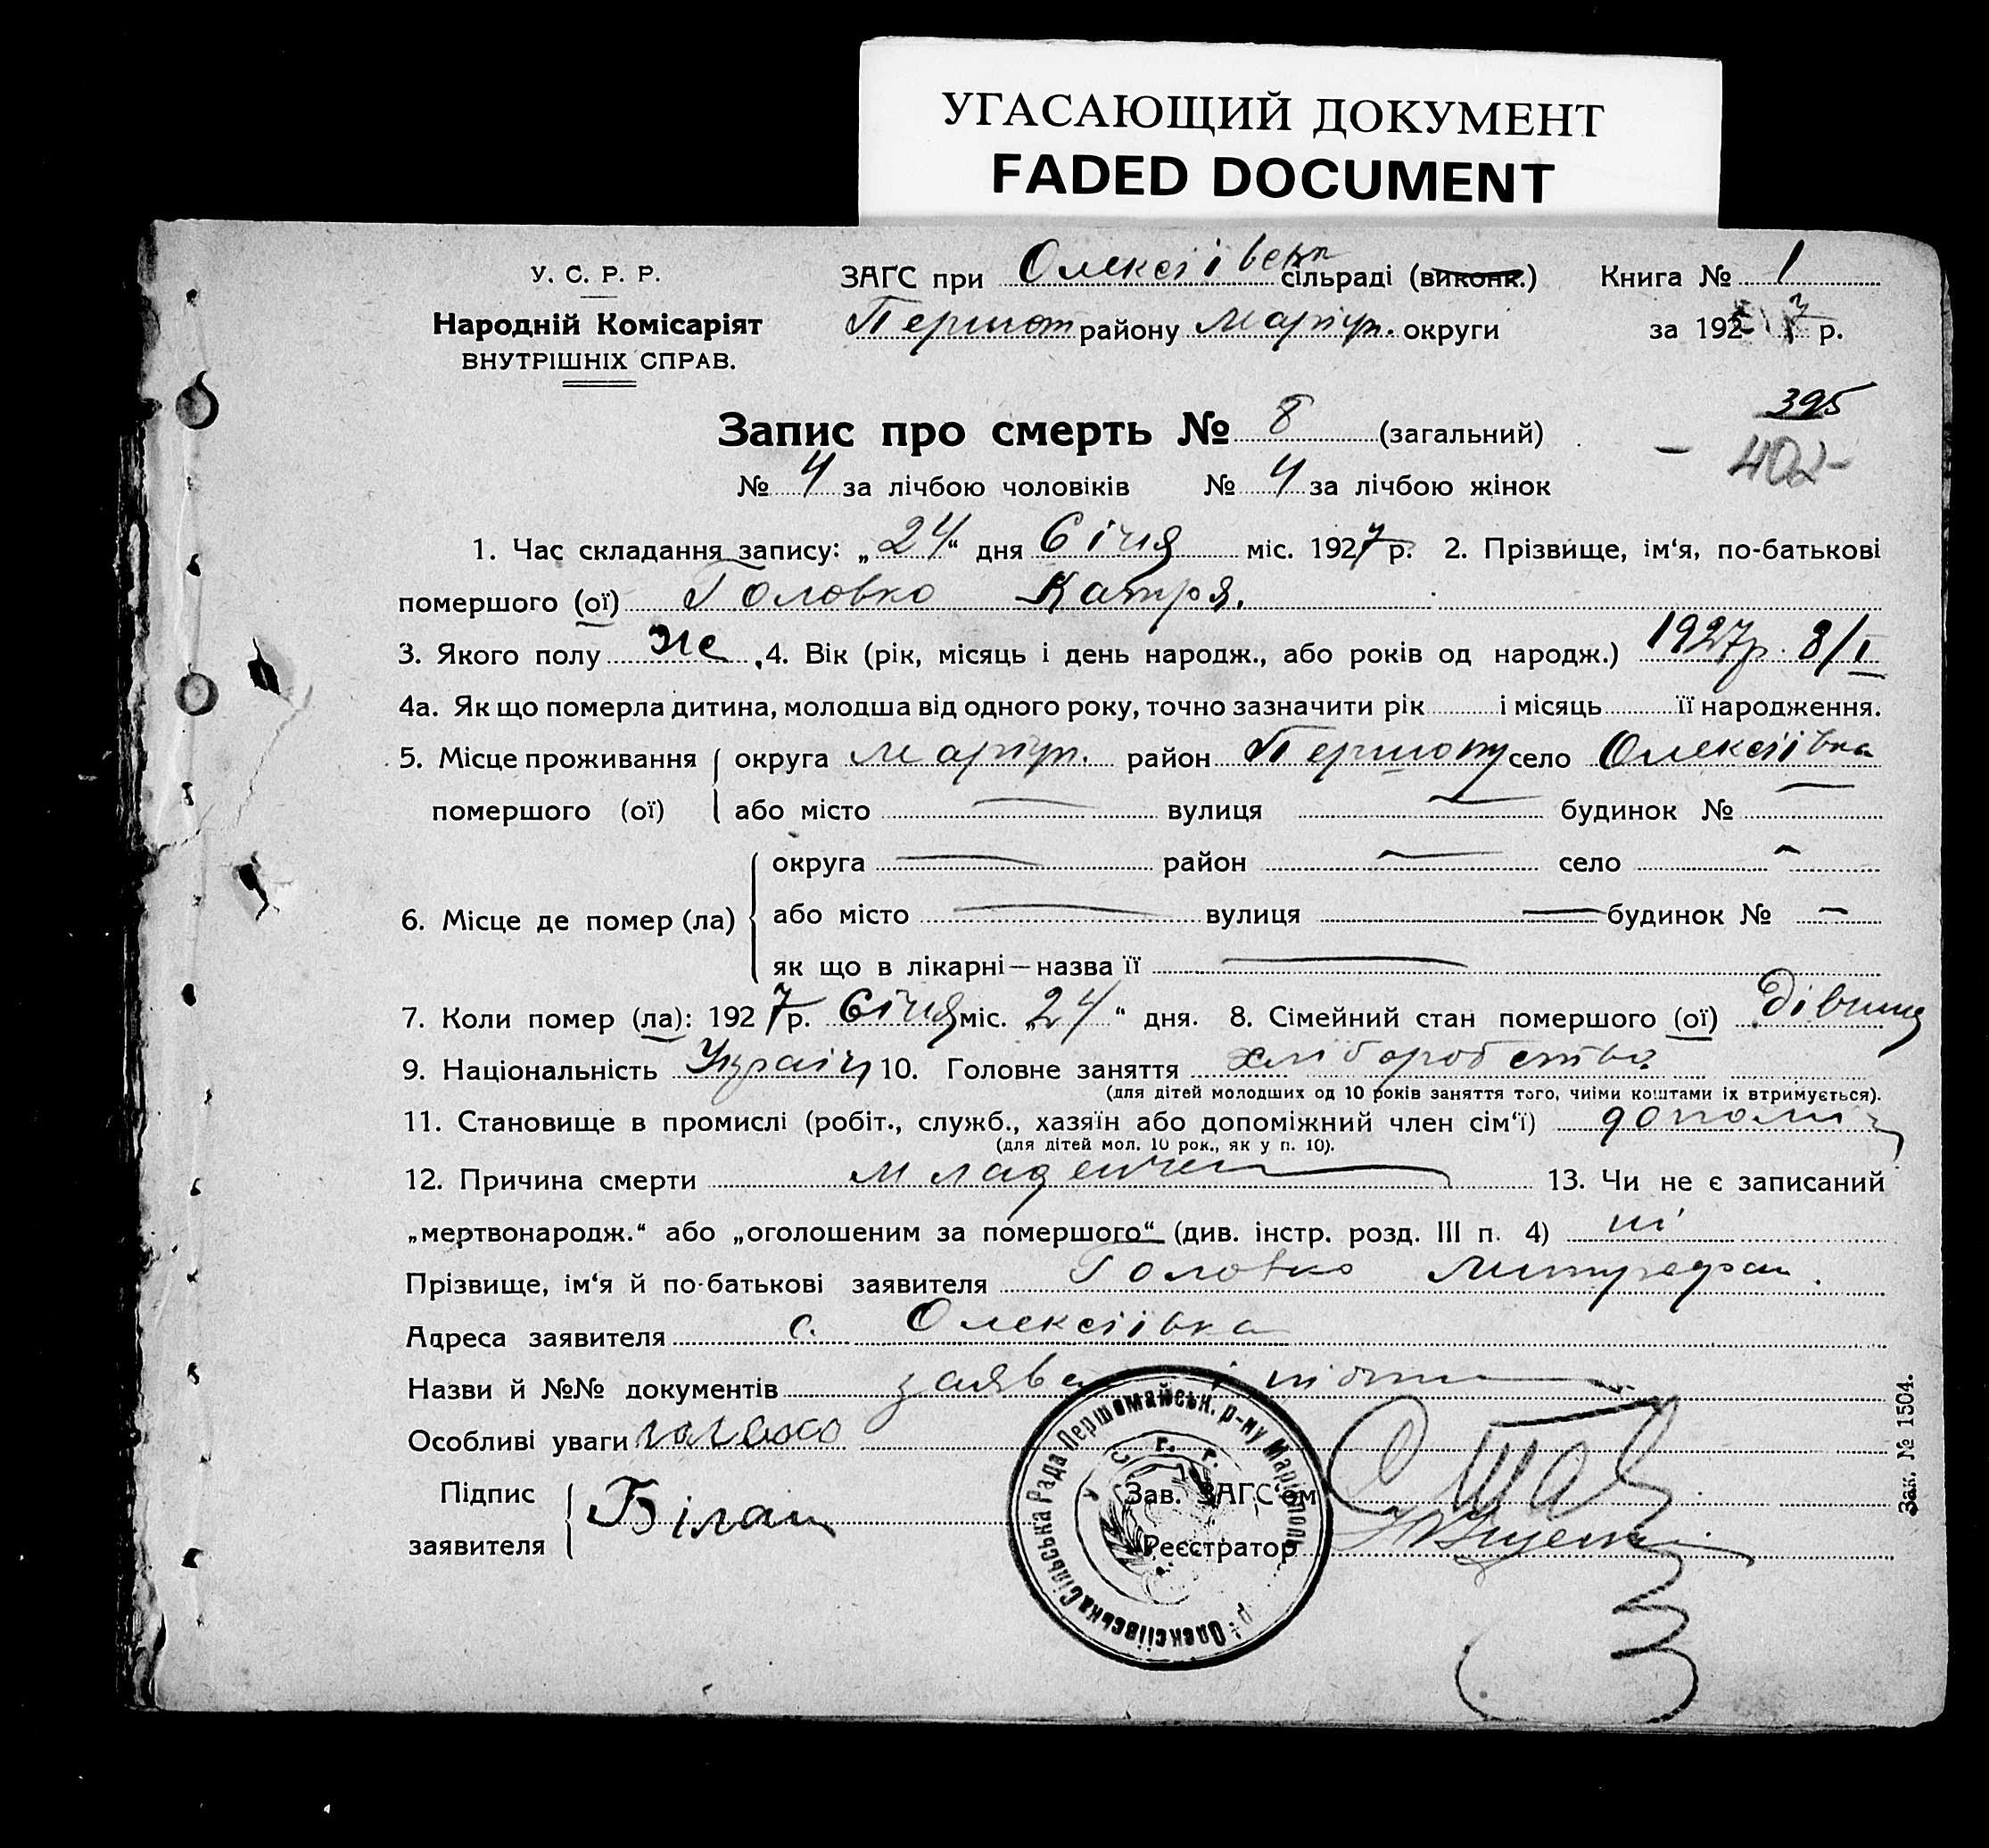 УГАСАЮЩИЙ ДОКУМЕНТ
FADED DOCUMENT
У. С. Р. Р.
Народній Комісаріят
ВНУТРІШНІХ СПРАВ.
ЗАГС при Олексіївськ сільраді (виконк.) Книга № 1
Першот району Маріуп. округи за 1927 р.
395
Запис про смерть № 8 (загальний)
- 402 -
№ 4 за лічбою чоловіків № 4 за лічбою жінок
1. Час складання запису: „24“ дня Січня міс. 1927 р. 2. Прізвище, ім‘я, по-батькові
помершого (ої) Головко Катря.
3. Якого полу же 4. Вік (рік, місяць і день народж., або років од народж.) 1927р. 8/I
4а. Як що померла дитина, молодша від одного року, точно зазначити рік і місяць її народження.
5. Місце проживання округа Маріуп. район село Олексіївка
помершого (ої) або місто — вулиця — будинок № —
округа — район — село —
6. Місце де помер (ла) або місто — вулиця — будинок № —
як що в лікарні—назва її —
7. Коли помер (ла): 1927 р. Січня міс. „24“ дня. 8. Сімейний стан помершого (ої) дівчина
9. Національність Україн 10. Головне заняття хліборобство
(для дітей молодших од 10 років заняття того, чиїми коштами їх втримується).
11. Становище в промислі (робіт., служб., хазяїн або допоміжний член сім‘ї) допоміж
(для дітей мол. 10 рок., як у п. 10).
12. Причина смерти младенчес 13. Чи не є записаний
„мертвонародж.“ або „оголошеним за помершого“ (див. інстр. розд. III п. 4) ні
Прізвище, ім‘я й по-батькові заявителя Головко Митрофан.
Адреса заявителя с. Олексіївка
Назви й №№ документів заява і
Особливі уваги
Підпис
заявителя Білаш
Зав. ЗАГС‘ом
Реєстратор
Олексіївська Сільська Рада Першомайськ. р-ну Маріюполь
Зак. № 1504.